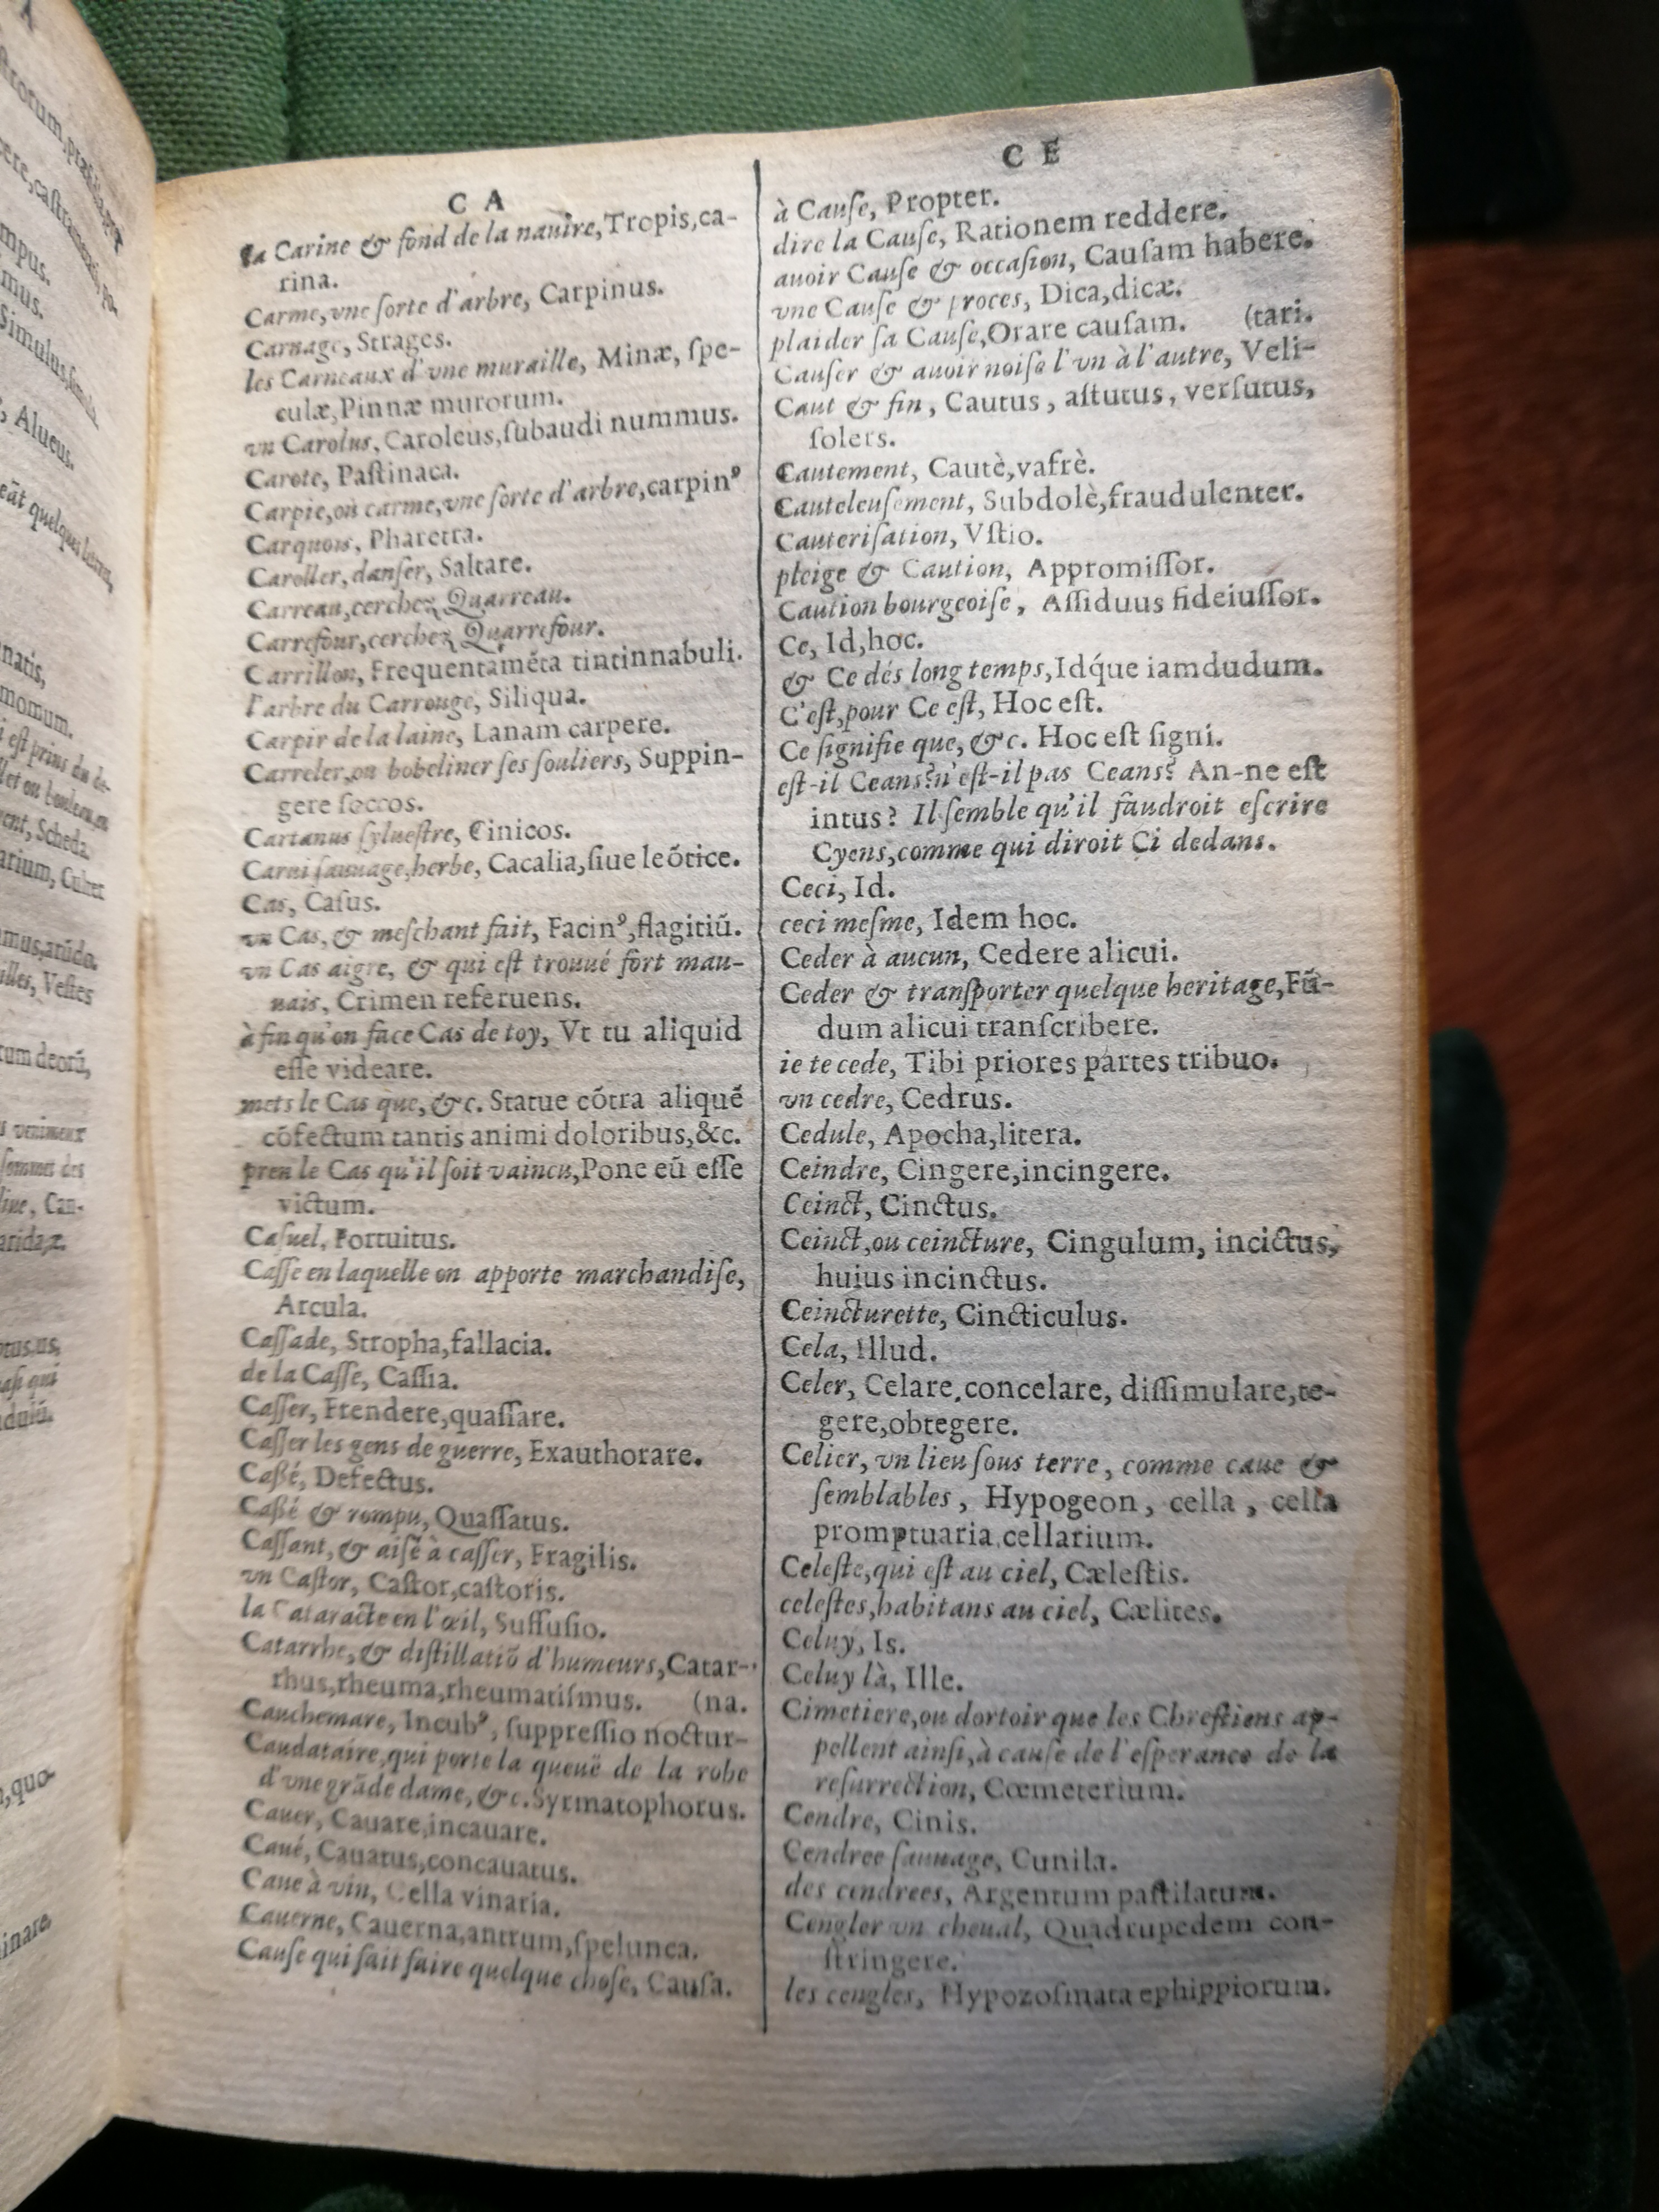 C A
la Carine & fond de la nauire, Tropis, ca-
rina.
Carme, vne ſorte d'arbre, Carpinus.
Carnage, Strages.
les Carneaux d'vne muraille, Minæ, ſpe-
culæ, Pinnæ murorum.
vn Carolus, Caroleus, ſubaudi nummus.
Carote, Paſtinaca.
Carpie, ou carme, vne ſorte d'arbre, carpinꝰ
Carquois, Pharetra.
Caroller, danſer, Saltare.
Carreau, cerchez Quarreau.
Carrefour, cerchez Quarrefour.
Carrillon, Frequentamẽta tintinnabuli.
l'arbre du Carrouge, Siliqua.
Carpir de la laine, Lanam carpere.
Carreler, ou bobeliner ſes ſouliers, Suppin-
gere ſoccos.
Cartanus ſylueſtre, Cinicos.
Carui ſauuage, herbe, Cacalia, ſiue leõtice.
Cas, Caſus.
vn Cas, & meſchant fait, Facinꝰ, flagitiũ.
vn Cas aigre, & qui eſt trouué fort mau-
uais, Crimen referuens.
à fin qu'on face Cas de toy, Vt tu aliquid
eſſe videare.
mets le Cas que, &c. Statue cõtra aliquẽ
cõfectum tantis animi doloribus, &c.
pren le Cas qu'il ſoit vaincu, Pone eũ eſſe
victum.
Caſuel, Fortuitus.
Caſſe en laquelle on apporte marchandiſe,
Arcula.
Caſſade, Stropha, fallacia.
de la Caſſe, Caſſia.
Caſſer, Frendere, quaſſare.
Caſſer les gens de guerre, Exauthorare.
Caßé, Defectus.
Caßé & rompu, Quaſſatus.
Caſſant, & aiſé à caſſer, Fragilis.
vn Caſtor, Caſtor, caſtoris.
la Cataracte en l'œil, Suffuſio.
Catarrhe, & diſtillatiõ d'humeurs, Catar-
rhus, rheuma, rheumatiſmus. (na.
Cauchemare, Incubꝰ, ſuppreſſio noctur-
Caudataire, qui porte la queuë de la robe
d'vne grãde dame, &c. Syrmatophorus.
Cauer, Cauare, incauare.
Caué, Cauatus, concauatus.
Caue à vin, Cella vinaria.
Cauerne, Cauerna, antrum, ſpelunca.
Cauſe qui fait faire quelque choſe, Cauſa.
C E
à Cauſe, Propter.
dire la Cauſe, Rationem reddere.
auoir Cauſe & occaſion, Cauſam habere.
vne Cauſe & proces, Dica, dicæ.
plaider ſa Cauſe, Orare cauſam. (tari.
Cauſer & auoir noiſe l'vn à l'autre, Veli-
Caut & fin, Cautus, aſtutus, verſutus,
ſolers.
Cautement, Cautè, vafrè.
Cauteleuſement, Subdolè, fraudulenter.
Cauteriſation, Vſtio.
pleige & Caution, Appromiſſor.
Caution bourgeoiſe, Aſſiduus fideiuſſor.
Ce, Id, hoc.
& Ce dés long temps, Idq́ue iamdudum.
C'eſt, pour Ce eſt, Hoc eſt.
Ce ſignifie que, &c. Hoc eſt ſigni.
eſt-il Ceans? n'eſt-il pas Ceans? An-ne eſt
intus? Il ſemble qu'il faudroit eſcrire
Cyens, comme qui diroit Ci dedans.
Ceci, Id.
ceci meſme, Idem hoc.
Ceder à aucun, Cedere alicui.
Ceder & tranſporter quelque heritage, Fũ-
dum alicui tranſcribere.
ie te cede, Tibi priores partes tribuo.
vn cedre, Cedrus.
Cedule, Apocha, litera.
Ceindre, Cingere, incingere.
Ceinct, Cinctus.
Ceinct, ou ceincture, Cingulum, incictus,
huius incinctus.
Ceincturette, Cincticulus.
Cela, Illud.
Celer, Celare, concelare, diſſimulare, te-
gere, obtegere.
Celier, vn lieu ſous terre, comme caue &
ſemblables, Hypogeon, cella, cella
promptuaria, cellarium.
Celeſte, qui eſt au ciel, Cæleſtis.
celeſtes, habitans au ciel, Cælites.
Celuy, Is.
Celuy là, Ille.
Cimetiere, ou dortoir que les Chreſtiens ap-
pellent ainſi, à cauſe de l'eſperance de la
reſurrection, Cœmeterium.
Cendre, Cinis.
Cendree ſauuage, Cunila.
des cendrees, Argentum paſtilatum.
Cengler vn cheual, Quadrupedem con-
ſtringere.
les cengles, Hypozoſmata ephippiorum.